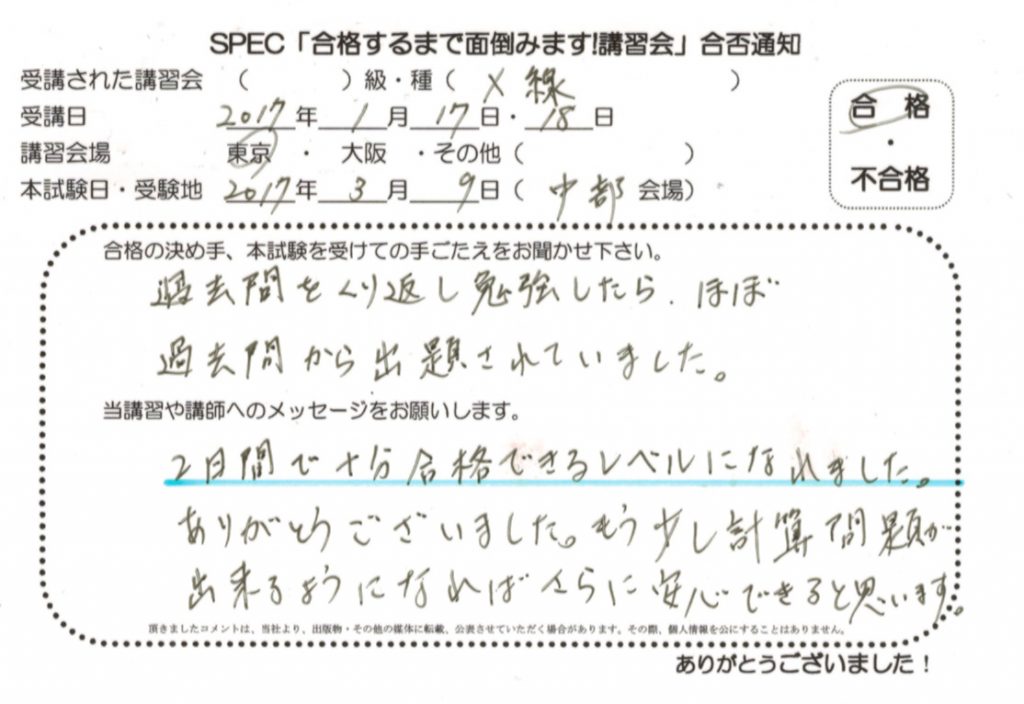 SPEC「合格するまで面倒みます!講習会」合否通知
受講された講習会 （ ）級・種（ X線 ）
受講日 2017年 1月 17日・18日
講習会場 東京 ・ 大阪 ・その他（ ）
本試験日・受験地 2017年 3月 9日（ 中部 会場）
合 格
・
不合格
合格の決め手、本試験を受けての手ごたえをお聞かせ下さい。
過去問をくり返し勉強したら、ほぼ
過去問から出題されていました。
当講習や講師へのメッセージをお願いします。
2日間で十分合格できるレベルになれました。
ありがとうございました。もう少し計算問題が
出来るようになればさらに安心できると思います。
頂きましたコメントは、当社より、出版物・その他の媒体に転載、公表させていただく場合があります。その際、個人情報を公にすることはありません。
ありがとうございました！